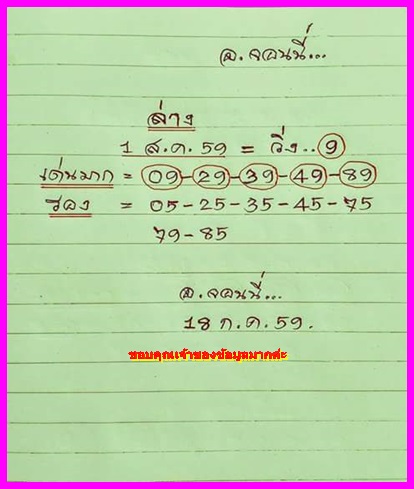 อ.จอนนี่...
ล่าง
1 ส.ค.59 = วิ่ง..9
เด่นมาก = 09-29-39-49-89
รอง = 05-25-35-45-75
79-85
อ.จอนนี่...
18 ก.ค.59.
ขอบคุณเจ้าของข้อมูลมากค่ะ